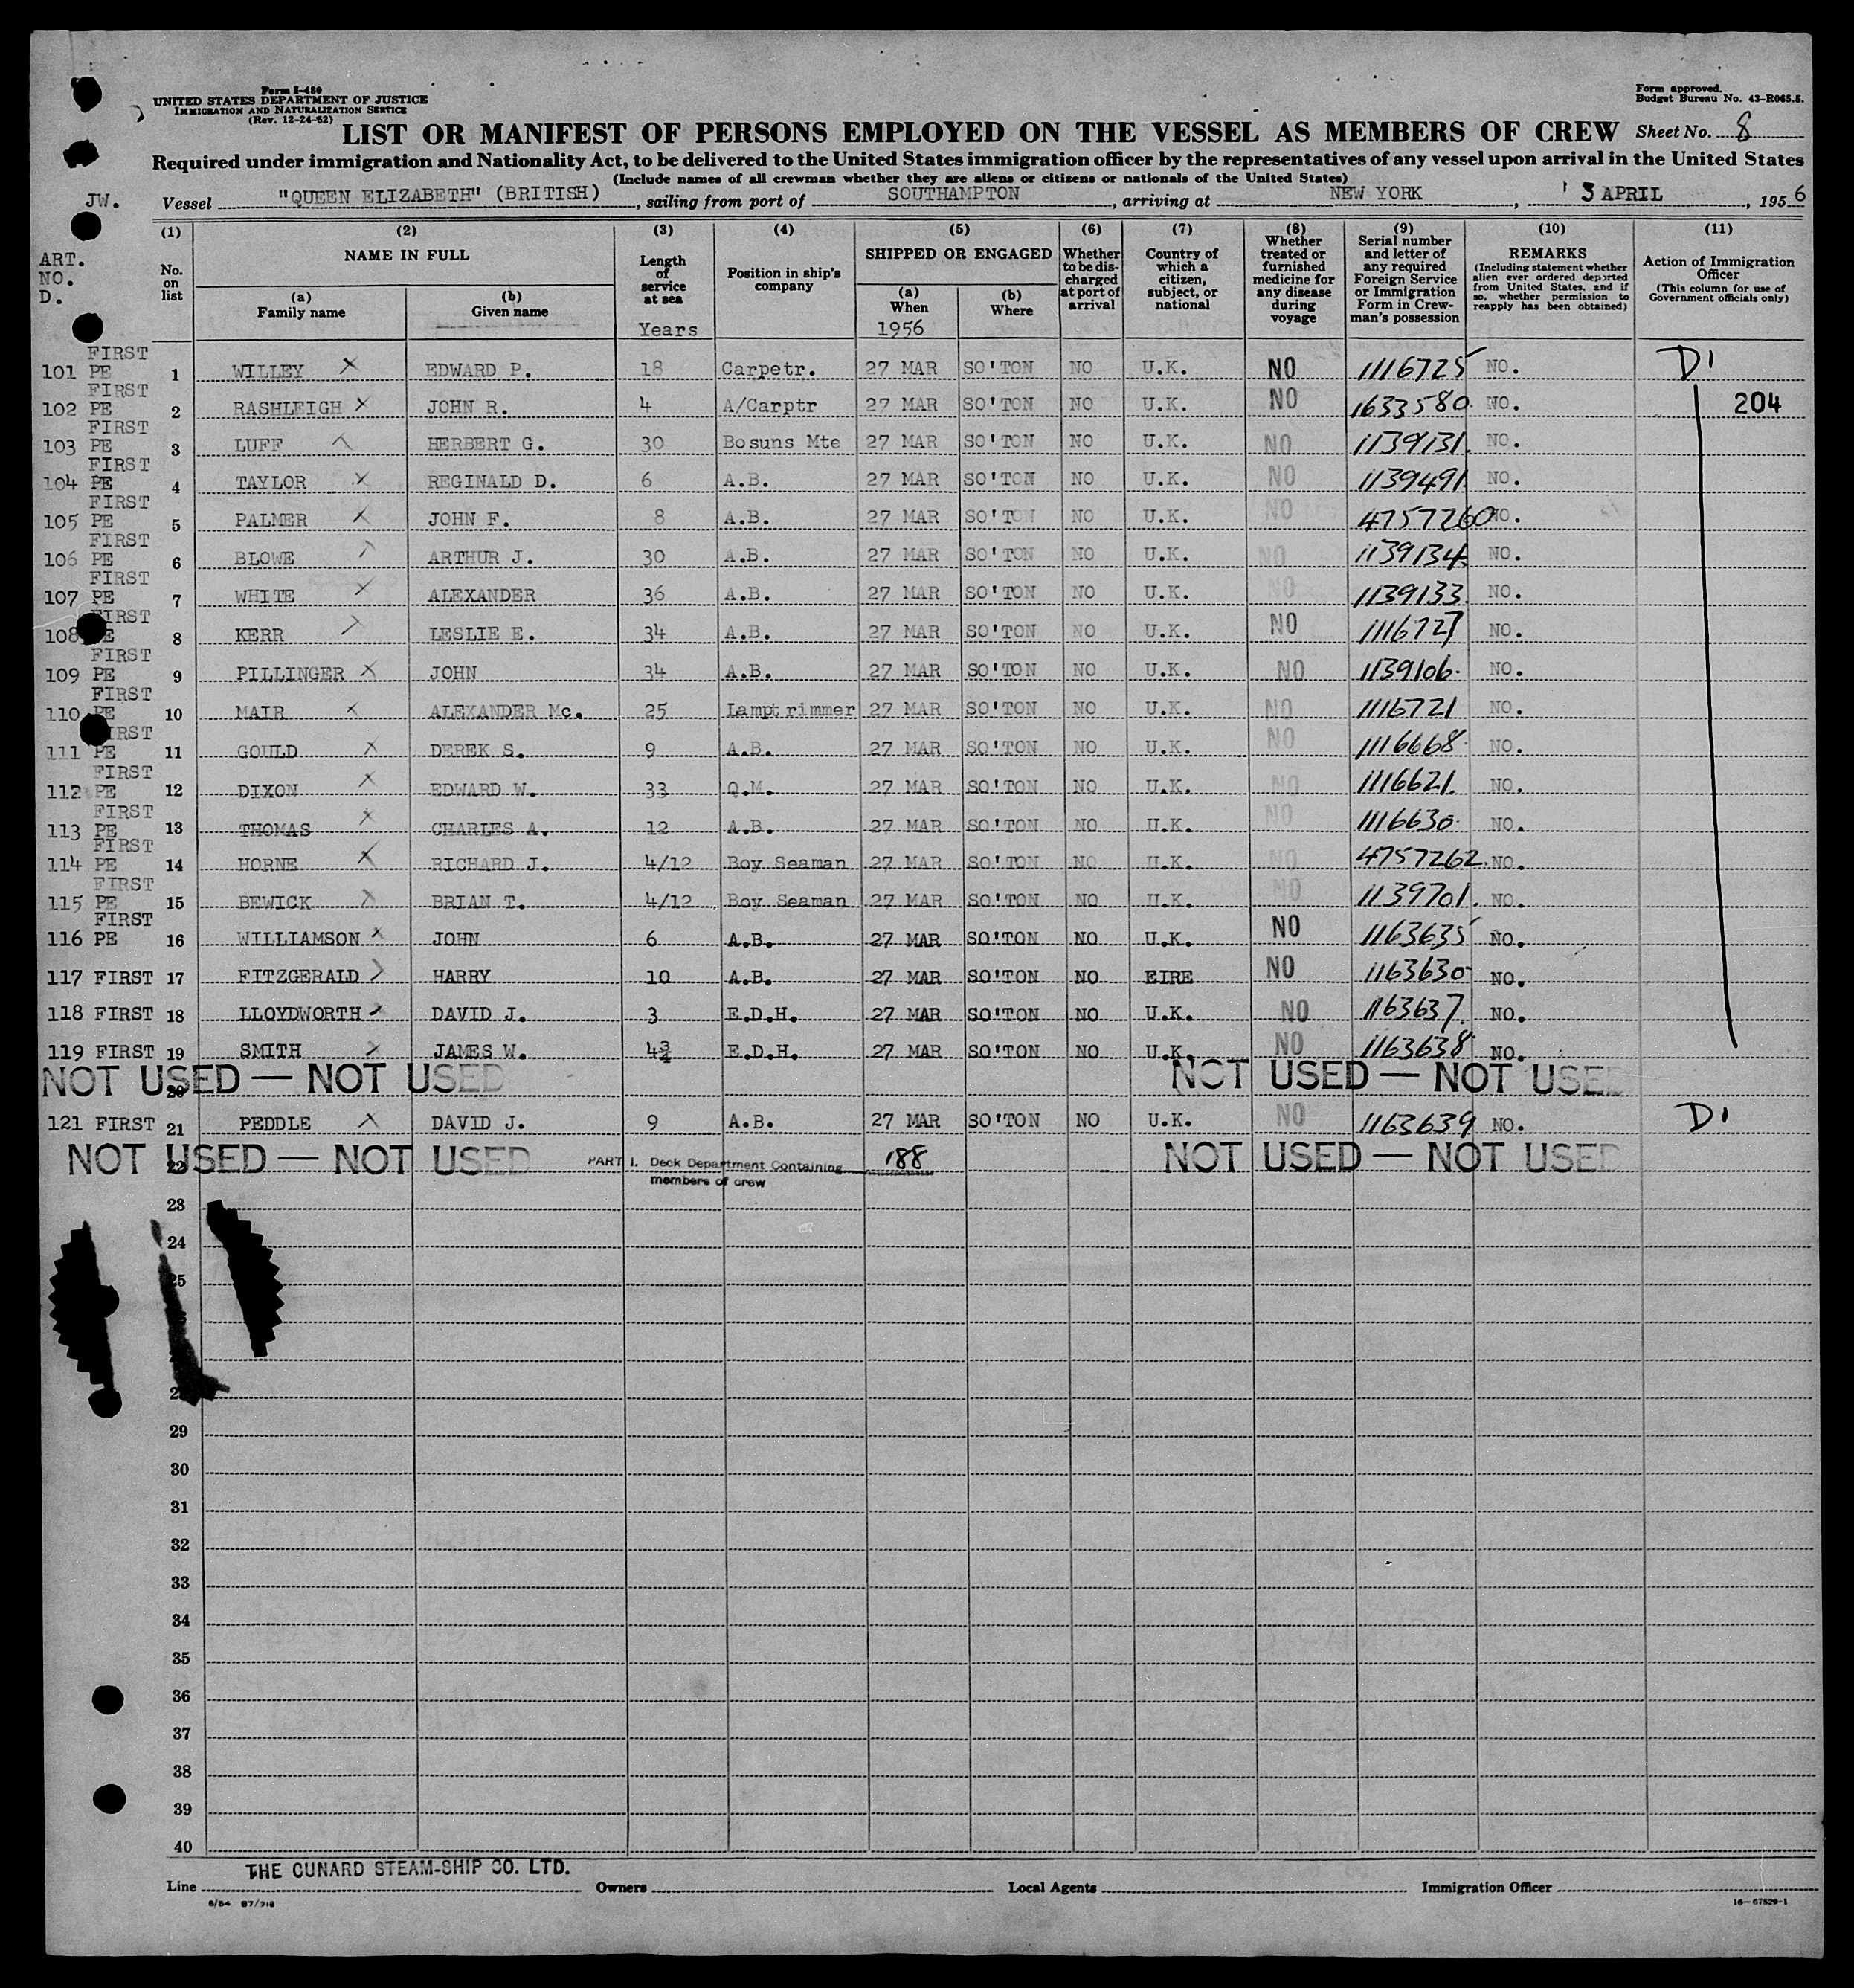 Form I-480
UNITED STATES DEPARTMENT OF JUSTICE
IMMIGRATION AND NATURALIZATION SERVICE
(Rev. 12-24-52)
Form approved.
Budget Bureau No. 43-R065.5.
LIST OR MANIFEST OF PERSONS EMPLOYED ON THE VESSEL AS MEMBERS OF CREW Sheet No. 8
Required under immigration and Nationality Act, to be delivered to the United States immigration officer by the representatives of any vessel upon arrival in the United States
(Include names of all crewman whether they are aliens or citizens or nationals of the United States)
JW. Vessel "QUEEN ELIZABETH" (BRITISH), sailing from port of SOUTHAMPTON, arriving at NEW YORK, 3 APRIL, 1956
ART. NO. D.
(1) No. on list
(2) NAME IN FULL (a) Family name (b) Given name
(3) Length of service at sea Years
(4) Position in ship's company
(5) SHIPPED OR ENGAGED (a) When 1956 (b) Where
(6) Whether to be discharged at port of arrival
(7) Country of which a citizen, subject, or national
(8) Whether treated or furnished medicine for any disease during voyage
(9) Serial number and letter of any required Foreign Service or Immigration Form in Crewman's possession
(10) REMARKS (Including statement whether alien ever ordered deported from United States, and if so, whether permission to reapply has been obtained)
(11) Action of Immigration Officer (This column for use of Government officials only)
101 FIRST PE 1 WILLEY X EDWARD P. 18 Carpetr. 27 MAR SO'TON NO U.K. NO 1116725 NO. D1
102 FIRST PE 2 RASHLEIGH X JOHN R. 4 A/Carptr 27 MAR SO'TON NO U.K. NO 1633580 NO. 204
103 FIRST PE 3 LUFF HERBERT G. 30 Bosuns Mte 27 MAR SO'TON NO U.K. NO 1139131. NO.
104 FIRST PE 4 TAYLOR X REGINALD D. 6 A.B. 27 MAR SO'TON NO U.K. NO 1139491 NO.
105 FIRST PE 5 PALMER X JOHN F. 8 A.B. 27 MAR SO'TON NO U.K. NO 4757260 NO.
106 FIRST PE 6 BLOWE ARTHUR J. 30 A.B. 27 MAR SO'TON NO U.K. NO 1139134 NO.
107 FIRST PE 7 WHITE X ALEXANDER 36 A.B. 27 MAR SO'TON NO U.K. NO 1139133. NO.
108 FIRST PE 8 KERR LESLIE E. 34 A.B. 27 MAR SO'TON NO U.K. NO 1116727 NO.
109 FIRST PE 9 PILLINGER X JOHN 34 A.B. 27 MAR SO'TON NO U.K. NO 1139106. NO.
110 FIRST PE 10 MAIR X ALEXANDER Mc. 25 Lamptrimmer 27 MAR SO'TON NO U.K. NO 1116721 NO.
111 FIRST PE 11 GOULD X DEREK S. 9 A.B. 27 MAR SO'TON NO U.K. NO 1116668. NO.
112 FIRST PE 12 DIXON X EDWARD W. 33 Q.M. 27 MAR SO'TON NO U.K. NO 1116621. NO.
113 FIRST PE 13 THOMAS X CHARLES A. 12 A.B. 27 MAR SO'TON NO U.K. NO 1116630. NO.
114 FIRST PE 14 HORNE X RICHARD J. 4/12 Boy Seaman 27 MAR SO'TON NO U.K. NO 4757262. NO.
115 FIRST PE 15 BEWICK X BRIAN T. 4/12 Boy Seaman 27 MAR SO'TON NO U.K. NO 1139701. NO.
116 FIRST PE 16 WILLIAMSON X JOHN 6 A.B. 27 MAR SO'TON NO U.K. NO 1163635 NO.
117 FIRST 17 FITZGERALD HARRY 10 A.B. 27 MAR SO'TON NO EIRE NO 1163630 NO.
118 FIRST 18 LLOYDWORTH X DAVID J. 3 E.D.H. 27 MAR SO'TON NO U.K. NO 1163637. NO.
119 FIRST 19 SMITH X JAMES W. 4¾ E.D.H. 27 MAR SO'TON NO U.K. NO 1163638 NO.
NOT USED — NOT USED 20 NOT USED — NOT USED
121 FIRST 21 PEDDLE X DAVID J. 9 A.B. 27 MAR SO'TON NO U.K. NO 1163639 NO. D1
NOT USED — NOT USED 22 PART 1. Deck Department Containing 188 NOT USED — NOT USED
members of crew
23
24
25
29
30
31
32
33
34
35
36
37
38
39
40
THE CUNARD STEAM-SHIP CO. LTD.
Line Owners Local Agents Immigration Officer
8/54 57/918
16—67829-1